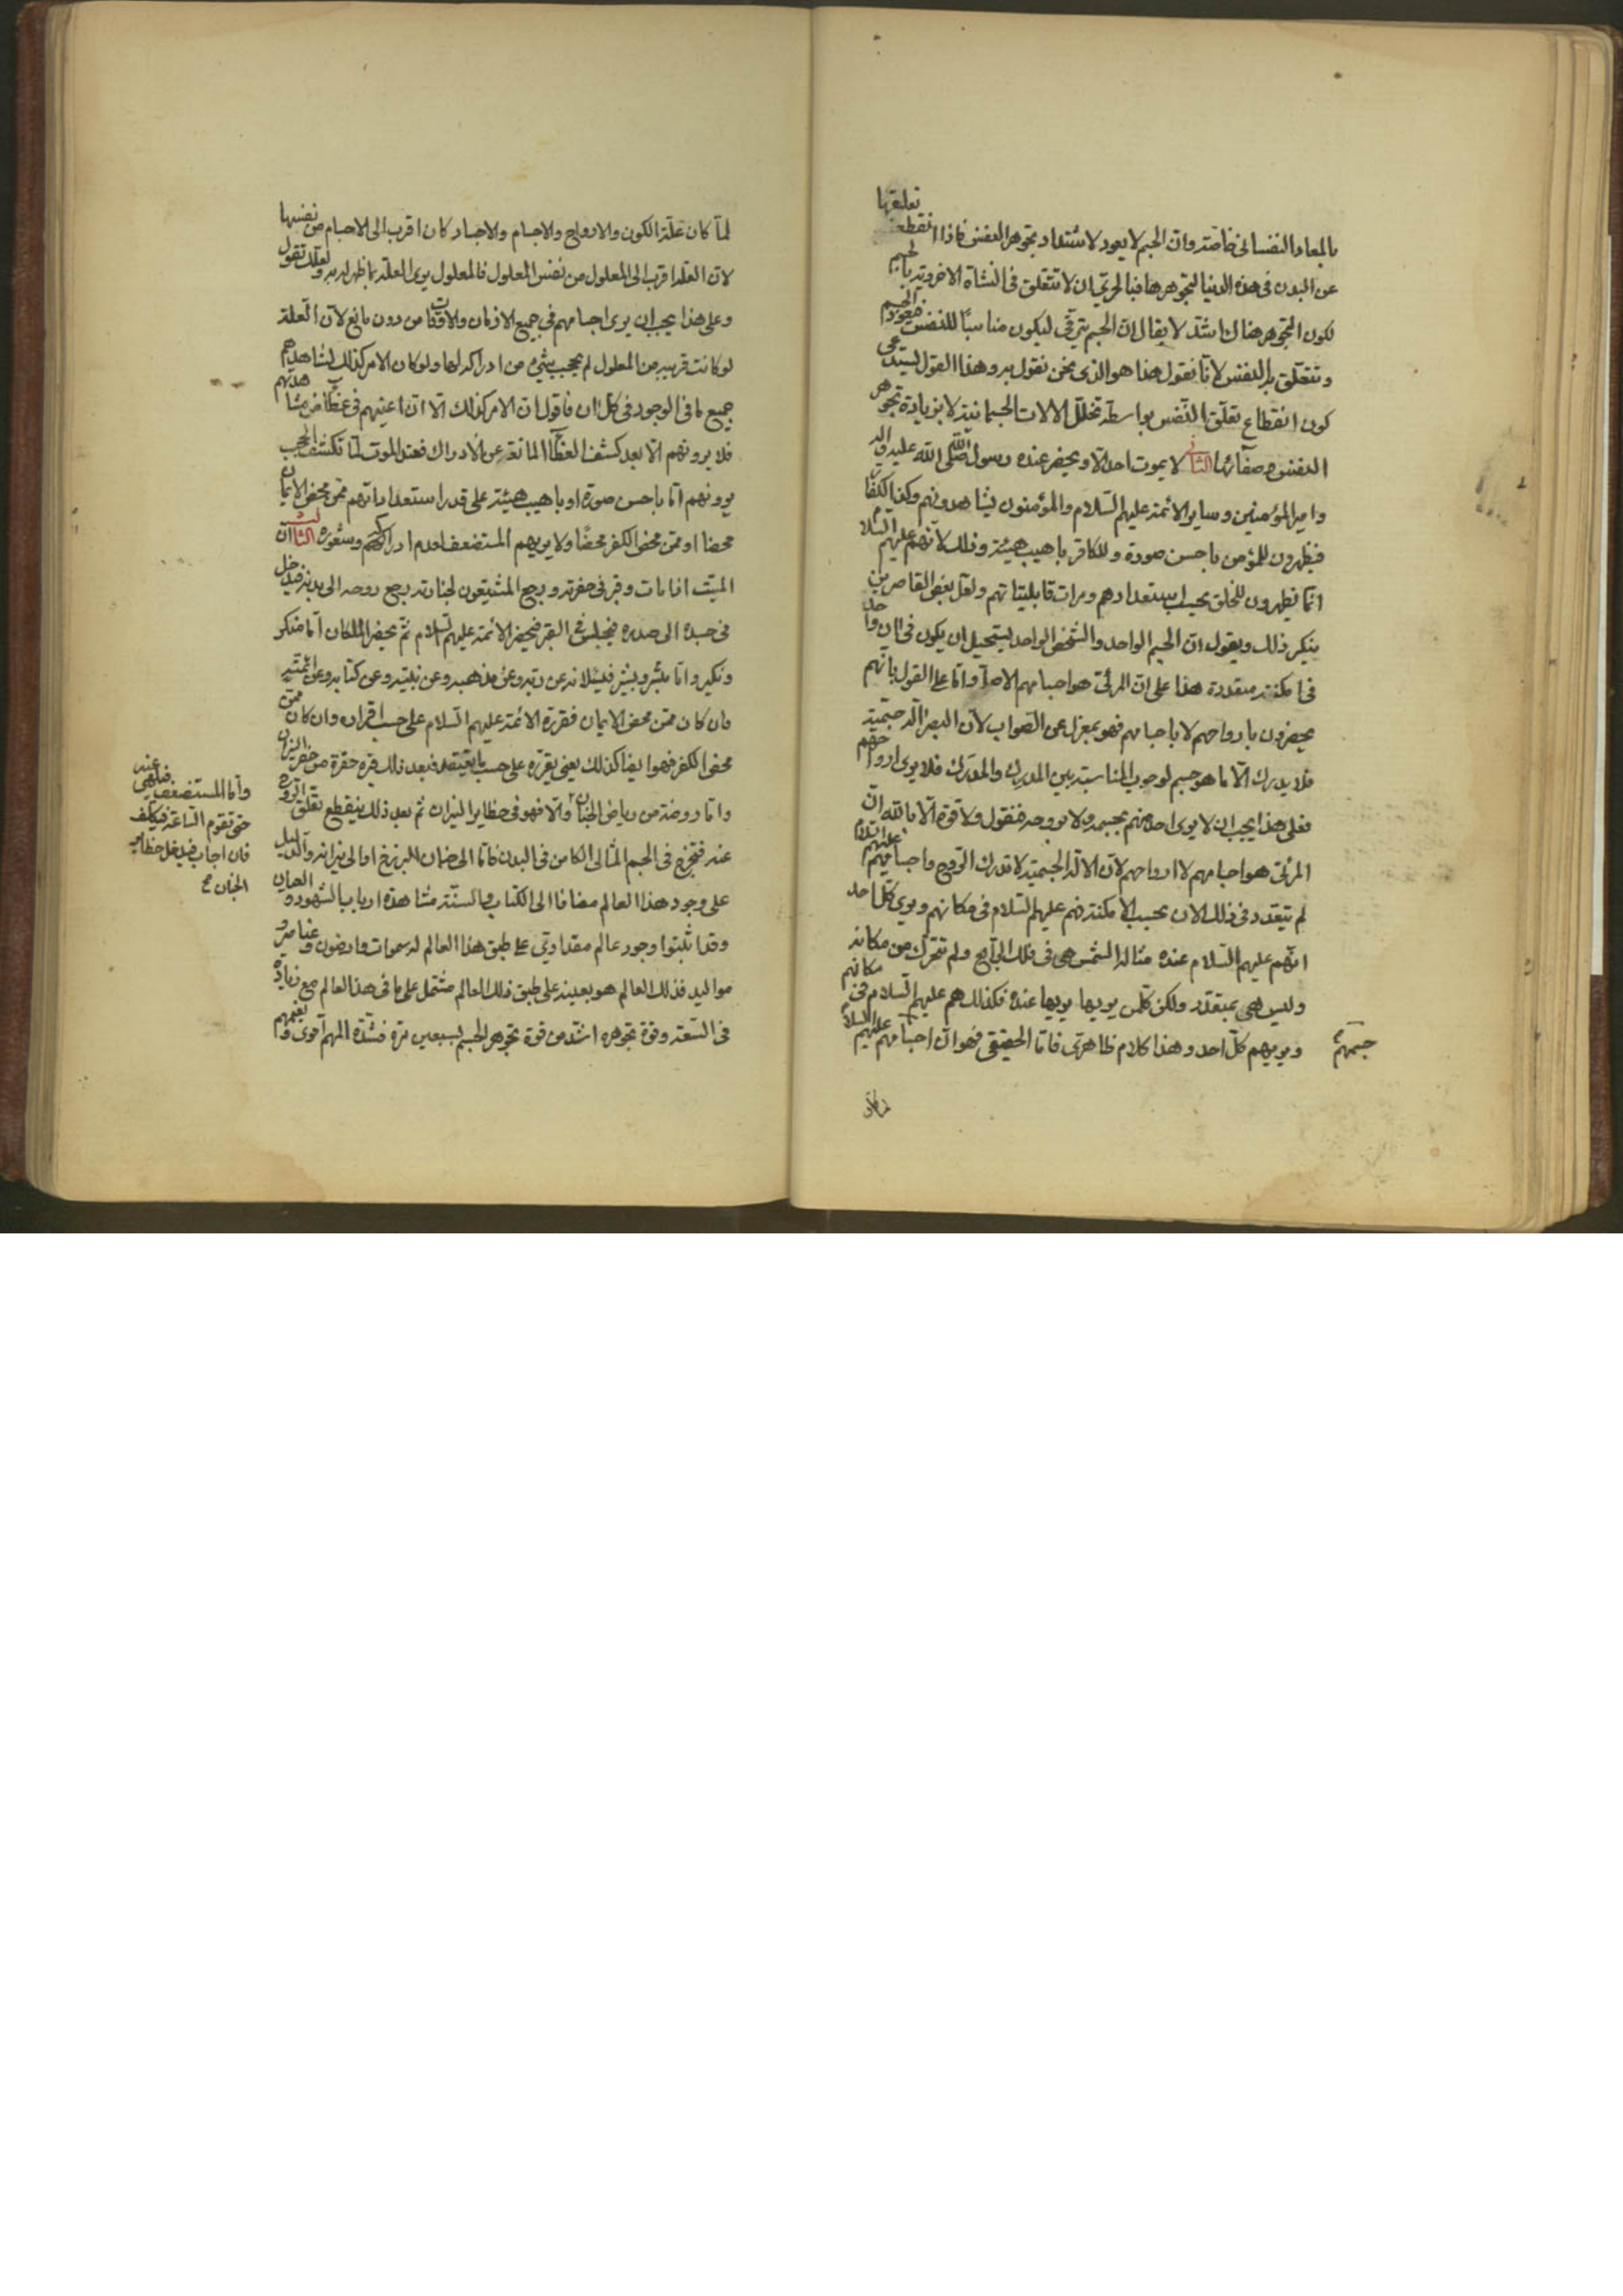 بالمعاد النفساني خاصة وان الجسم لا يعود لاشتداد تجوهر النفس فاذا انقطع تعلقها
عن البدن في هذه الدنيا لتجوهرها فبالحري ان لا تتعلق في النشاة الاخروية بالجسم
لكون التجوهر هناك اشد لا يقال ان الجسم يترقى ليكون مناسبًا للنفس فيعود الجسم
وتتعلق به النفس لانا نقول هذا هو الذي نحن نقول به وهذا القول يستدعي
كون انقطاع تعلق النفس بواسطة تخلل الالات الجسمانية لا بزيادة تجوهر
النفس وصفائها الثاني لا يموت احد الا ويحضر عنده رسول الله صلى الله عليه واله
وامير المؤمنين وساير الائمة عليهم السلام والمؤمنون يشاهدونهم وكذا الكفار
فيظهرون للمؤمن باحسن صورة وللكافر باهيب هيئة وذلك لانهم عليهم السلام
انما يظهرون للخلق بحسب استعدادهم ومرات قابلياتهم ولعل بعض القاصرين
ينكر ذلك ويقول ان الجسم الواحد والشخص الواحد يستحيل ان يكون في ان واحد
في امكنة متعددة هذا على ان المرئي هو اجسامهم الاصل واما على القول بانهم
يحضرون بارواحهم لا باجسامهم فهو بمعزل عن الصواب لان البصر الة جسمية
فلا يدرك الا ما هو جسم لوجوب المناسبة بين المدرك والمدرك فلا يرى ارواحهم
فعلى هذا يجب ان لا يرى احد منهم بجسمه ولا بروحه فنقول ولا قوة الا بالله ان
المرئي هو اجسامهم لا ارواحهم لان الالة الجسمية لا تدرك الروح واجسامهم عليهم السلام
لم تتعدد في ذلك الان بحسب الامكنة فهم عليهم السلام في مكانهم ويرى كل احد
انهم عليهم السلام عنده مثاله الشمس هي في فلك الرابع ولم تتحرك من مكانه
وليس هي بمتعدد ولكن كل من يريها يريها عنده فكذلك هم عليهم السلام في مكانهم
ويريهم كل احد وهذا كلام ظاهري فاما الحقيقي فهو ان اجسامهم عليهم السلام
جسمهم
لما كان علة الكون والارواح والاجسام والاجساد كان اقرب الى الاجسام من نفسها
لان العلة اقرب الى المعلول من نفس المعلول فالمعلول يرى العلة بما ظهر له به ولعلك تقول
وعلى هذا يجب ان يرى اجسامهم في جميع الازمان والاوقات من دون مانع لان العلة
لو كانت قريبة من المعلول لم يحجب شيء من ادراكه لها ولو كان الامر كذلك لشاهدهم
جميع ما في الوجود في كل ان فاقول ان الامر كذلك الا ان اعينهم في غطاء من مشاهدتهم
فلا يرونهم الا بعد كشف الغطاء المانعة عن الادراك فعند الموت لما تكشف الحجب
يرونهم اما باحسن صورة او باهيب هيئة على قدر استعداداتهم ممن محض الايمان
محضا او ممن محض الكفر محضًا ولا يريهم المستضعف لعدم ادراكهم وشعوره الثالث ان
الميت اذا مات وقبر في حفرته ورجع المشيعون لجنازته يرجع روحه الى بدنه فيدخل
في جسده الى صدره فيجلس في القبر فيحضر الائمة عليهم السلام ثم يحضر الملكان اما منكر
ونكير واما مبشر وبشير فيسئلانه عن ربه وعن مذهبه وعن نبيه وعن كتابه وعن ائمته
فان كان ممن محض الايمان فقرره الائمة عليهم السلام على حسب اقراره وان كان ممن
محض الكفر فهو ايضا كذلك يعني يقرره على حسب ما يعتقد فبعد ذلك قبره حفرة من حفر النيران
واما روضة من رياض الجنان والا فهو في حظاير النيران ثم بعد ذلك ينقطع تعلق الروح
عنه فتخرج في الجسم المثالي الكامن في البدن فاما الى جنان البرزخ او الى نيرانه والدليل
على وجود هذا العالم مضافا الى الكتاب والسنة مشاهدة ارباب الشهود والعيان
وقد اثبتوا وجود عالم مقداري على طبق هذا العالم له سموات وارضون وعناصر و
مواليد فذلك العالم هو بعينه على طبق ذلك العالم مشتمل على ما في هذا العالم مع زيادة
في السعة وقوة تجوهره اشد من قوة تجوهر الجسم بسبعين مرة فشدة المهم اقوى ونعيمهم
واما المستضعف فيلهى عنه
حتى تقوم الساعة فيكلف
فان اجاب فيدخل حظاير
الجنان صح